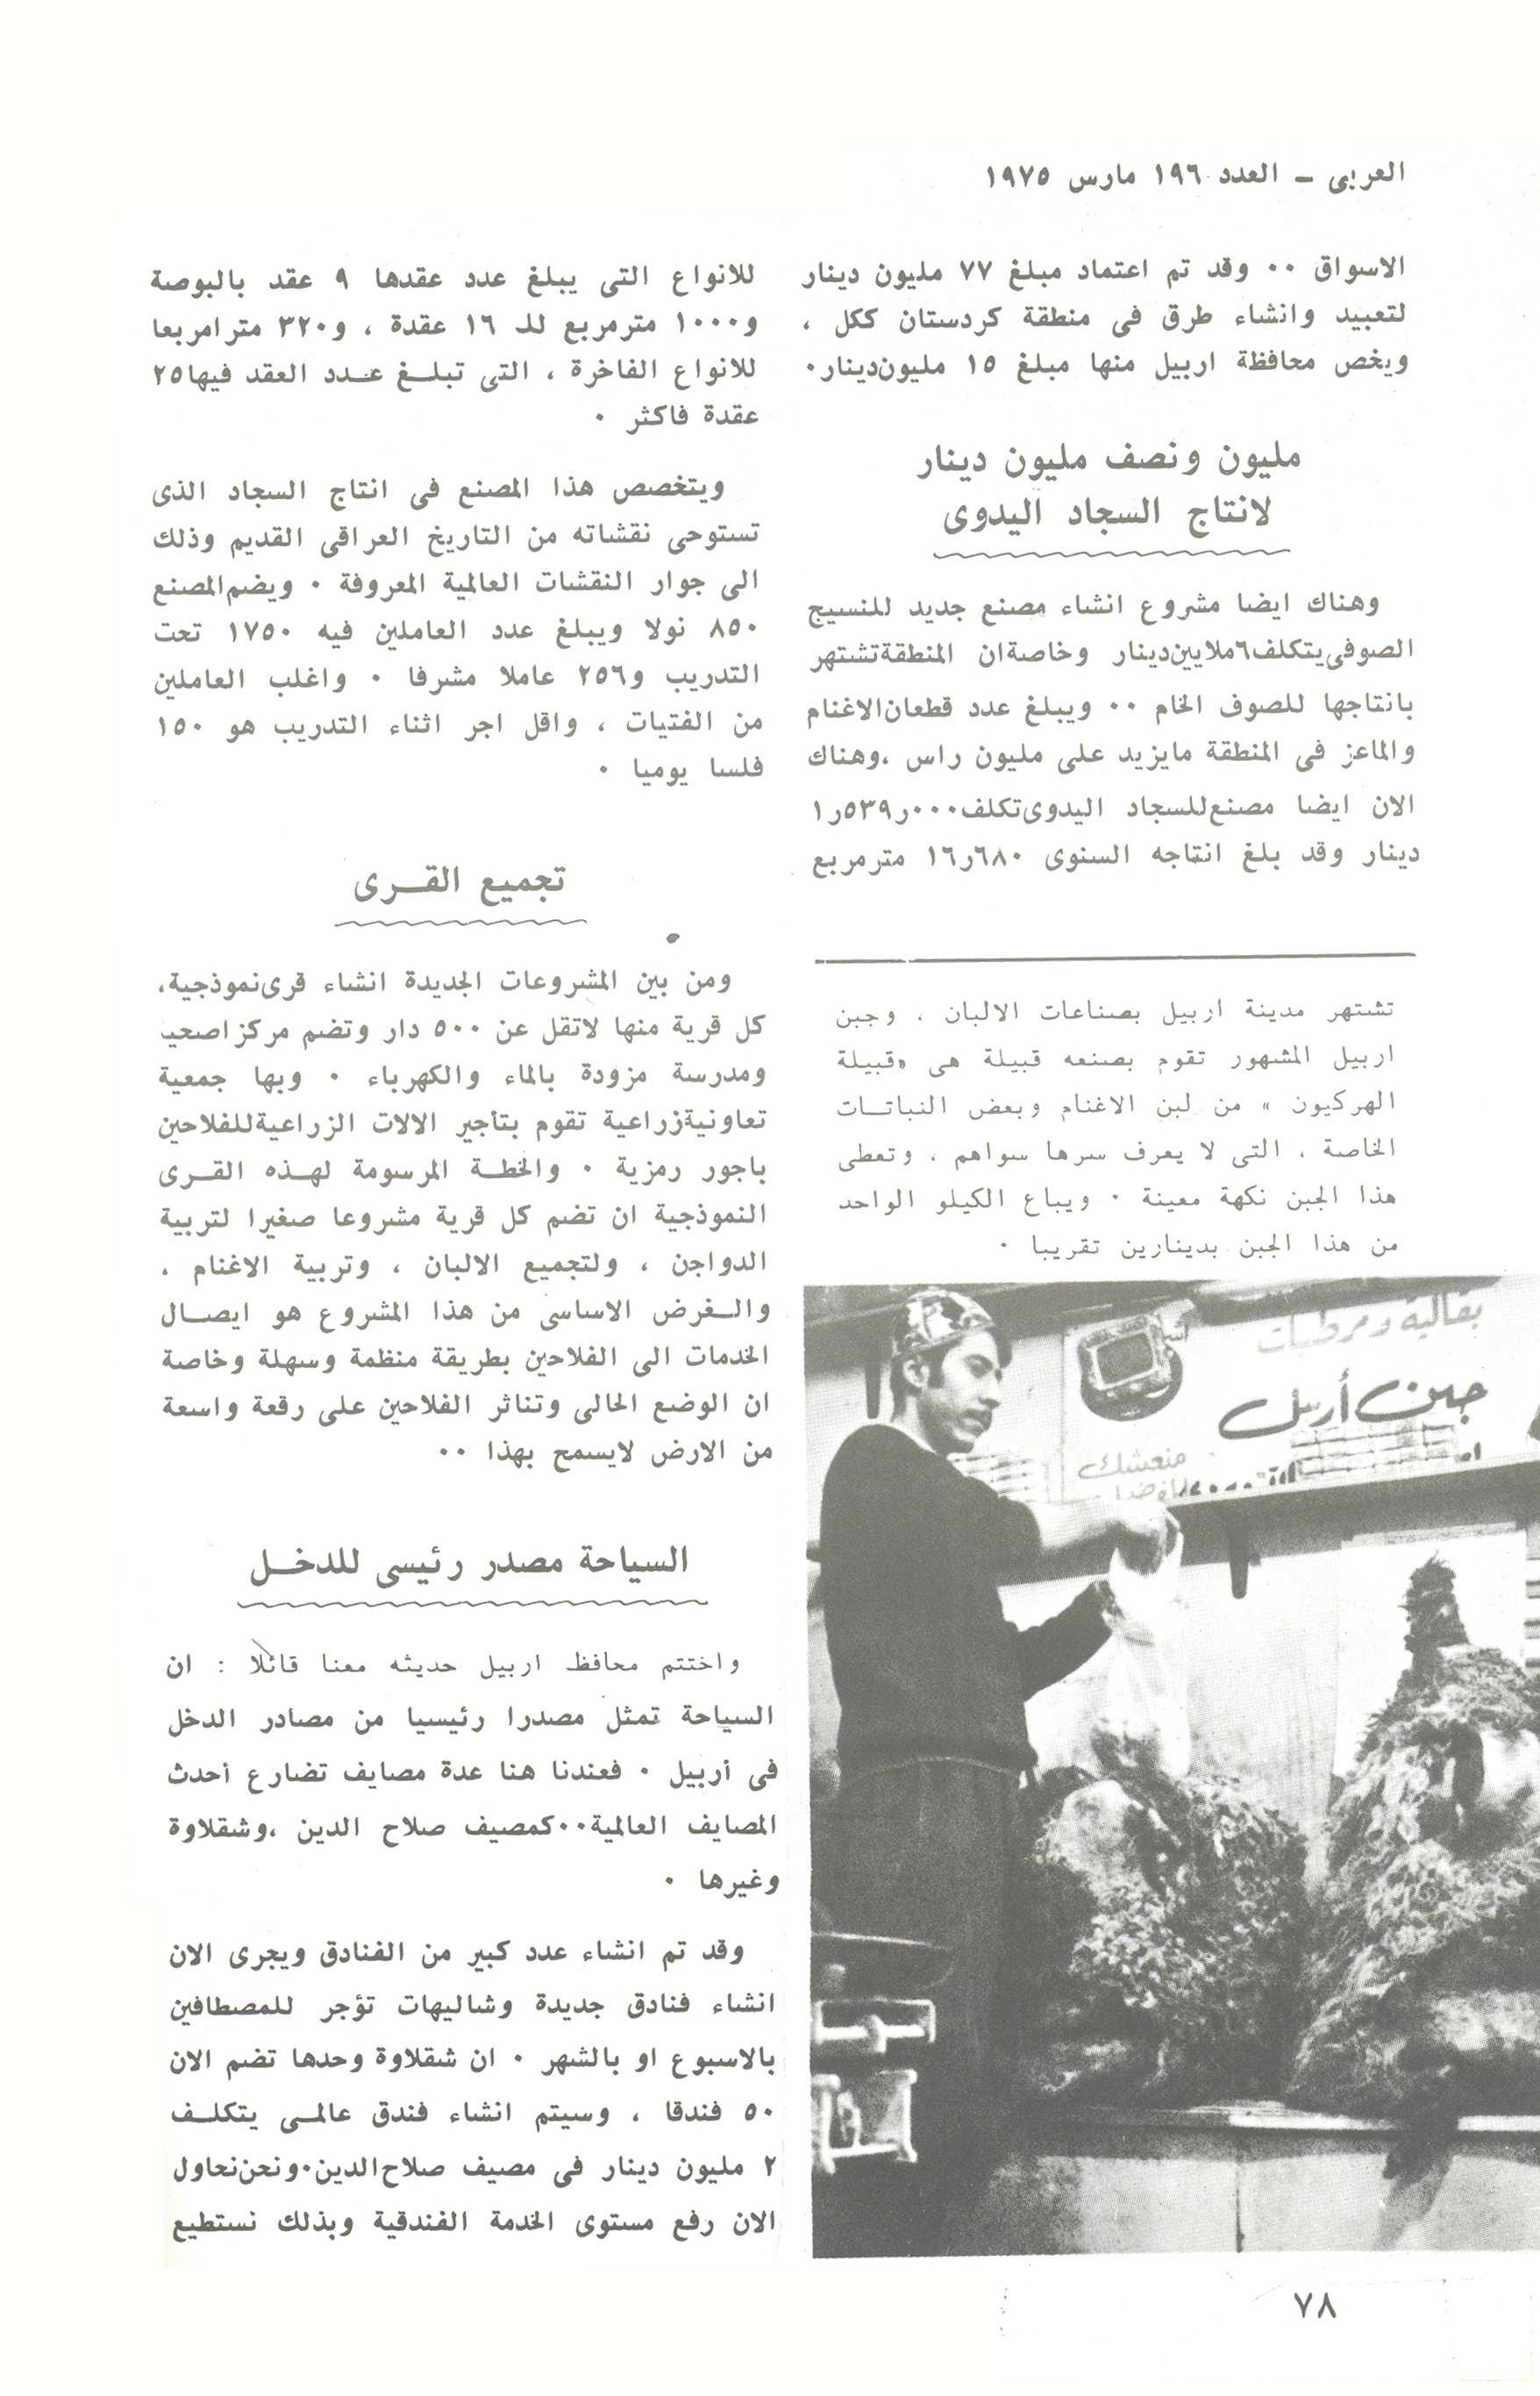 العربى – العدد ١٩٦ مارس ١٩٧٥
الاسواق ٠٠ وقد تم اعتماد مبلغ ٧٧ مليون دينار
لتعبيد وانشاء طرق فى منطقة كردستان ككل ،
ويخص محافظة اربيل منها مبلغ ١٥ مليون دينار ٠
مليون ونصف مليون دينار
لانتاج السجاد اليدوى
وهناك ايضا مشروع انشاء مصنع جديد للنسيج
الصوفى يتكلف ٦ ملايين دينار وخاصة ان المنطقة تشتهر
بانتاجها للصوف الخام ٠٠ ويبلغ عدد قطعان الاغنام
والماعز فى المنطقة مايزيد على مليون راس ، وهناك
الان ايضا مصنع للسجاد اليدوى تكلف ٠٠٠ر٥٣٩ر١
دينار وقد بلغ انتاجه السنوى ٦٨٠ر١٦ مترمربع
تشتهر مدينة اربيل بصناعات الالبان ، وجبن
اربيل المشهور تقوم بصنعه قبيلة هى « قبيلة
الهركيون » من لبن الاغنام وبعض النباتـات
الخاصة ، التى لا يعرف سرها سواهم ، وتعطى
هذا الجبن نكهة معينة ٠ ويباع الكيلو الواحد
من هذا الجبن بدينارين تقريبا ٠
بقالية ومرطبات
جبن أربيل
منعشك
للانواع التى يبلغ عدد عقدها ٩ عقد بالبوصة
و١٠٠٠ مترمربع للـ ١٦ عقدة ، و٣٢٠ مترامربعا
للانواع الفاخرة ، التى تبلـغ عـدد العقد فيها ٢٥
عقدة فاكثر ٠
ويتخصص هذا المصنع فى انتاج السجاد الذى
تستوحى نقشاته من التاريخ العراقى القديم وذلك
الى جوار النقشات العالمية المعروفة ٠ ويضم المصنع
٨٥٠ نولا ويبلغ عدد العاملين فيه ١٧٥٠ تحت
التدريب و٢٥٦ عاملا مشرفا ٠ واغلب العاملين
من الفتيات ، واقل اجر اثناء التدريب هو ١٥٠
فلسا يوميا ٠
تجميع القـــرى
ومن بين المشروعات الجديدة انشاء قرى نموذجية،
كل قرية منها لاتقل عن ٥٠٠ دار وتضم مركزا صحيا
ومدرسة مزودة بالماء والكهرباء ٠ وبها جمعية
تعاونية زراعية تقوم بتأجير الالات الزراعية للفلاحين
باجور رمزية ٠ والخطـة المرسومة لهـذه القـرى
النموذجية ان تضم كل قرية مشروعا صغيرا لتربية
الدواجن ، ولتجميع الالبان ، وتربية الاغنام ،
والـغرض الاساسى من هذا المشروع هو ايصـال
الخدمات الى الفلاحين بطريقة منظمة وسهلة وخاصة
ان الوضع الحالى وتناثر الفلاحين على رقعة واسعة
من الارض لايسمح بهذا ٠٠
السياحة مصدر رئيسى للدخـل
واختتم محافظ اربيل حديثه معنا قائلا : ان
السياحة تمثل مصدرا رئيسيا من مصادر الدخل
فى أربيل ٠ فعندنا هنا عدة مصايف تضارع أحدث
المصايف العالمية ٠٠ كمصيف صلاح الدين ، وشقلاوة
وغيرها ٠
وقد تم انشاء عدد كبير من الفنادق ويجرى الان
انشاء فنادق جديدة وشاليهات تؤجر للمصطافين
بالاسبوع او بالشهر ٠ ان شقلاوة وحدها تضم الان
٥٠ فندقا ، وسيتم انشاء فندق عالمـى يتكلـف
٢ مليون دينار فى مصيف صلاح الدين ٠ ونحن نحاول
الان رفع مستوى الخدمة الفندقية وبذلك نستطيع
٧٨